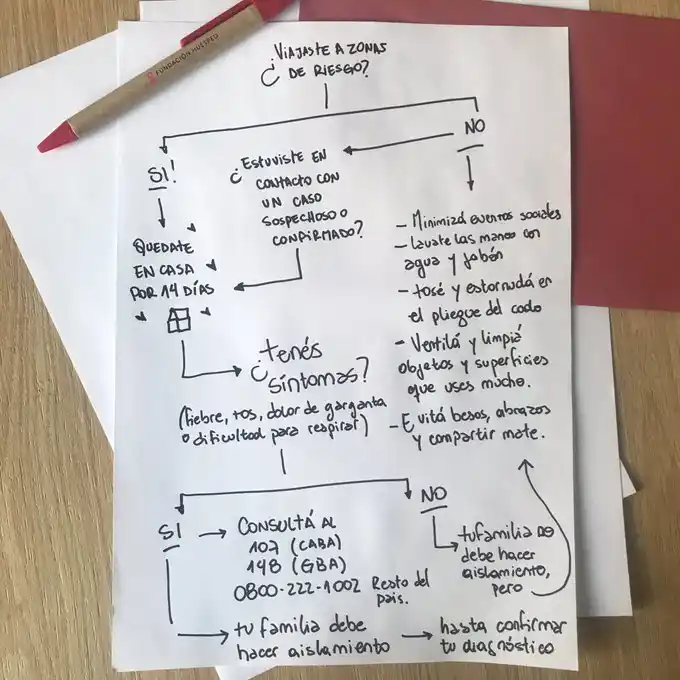 FUNDACIÓN HUÉSPED
¿VIAJASTE A ZONAS
DE RIESGO?
SI!
NO
¿ESTUVISTE EN
CONTACTO CON
UN CASO
SOSPECHOSO O
CONFIRMADO?
QUEDATE
EN CASA
POR 14 DÍAS
- Minimizá eventos sociales
- lavate las manos con
agua y jabón
- tosé y estornudá en
el pliegue del codo
- Ventilá y limpiá
objetos y superficies
que uses mucho.
- Evitá besos, abrazos
y compartir mate.
¿tenés
síntomas?
(fiebre, tos, dolor de garganta
o dificultad para respirar)
SI
CONSULTÁ AL
107 (CABA)
148 (GBA)
0800-222-1002 Resto del
país.
NO
tu familia no
debe hacer
aislamiento,
pero
tu familia debe
hacer aislamiento
hasta confirmar
tu diagnóstico